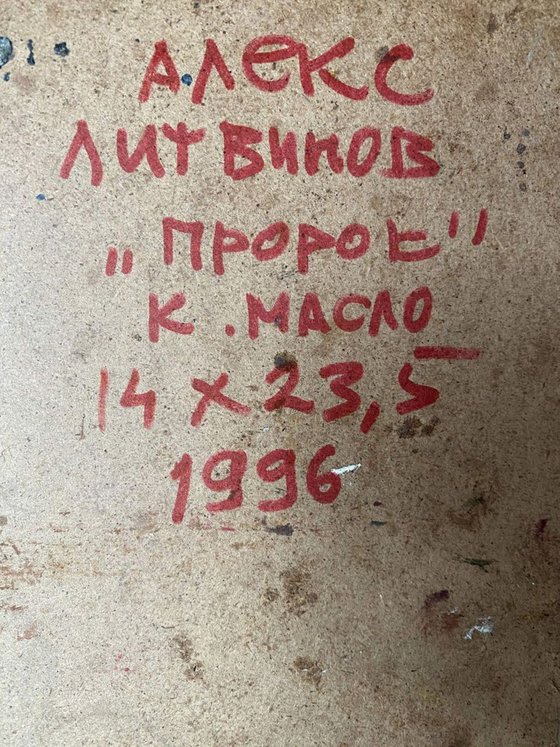 АЛЕКС
ЛИТВИНОВ
„ПРОРОК"
К. МАСЛО
14 X 23,5
1996